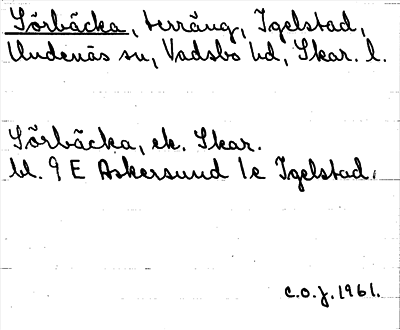 Sörbäcka, terräng, Igelstad,
Undenäs sn, Vadsbo hd, Skar. l.
Sörbäcka, ek. Skar.
bl. 9 E Askersund 1e Igelstad.
C.O.J. 1961.